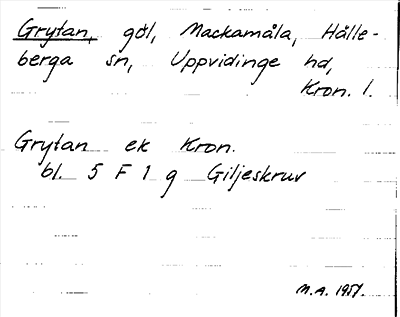 Grytan, göl, Mackamåla, Hälle-
berga sn, Uppvidinge hd,
Kron. l.
Grytan ek Kron.
bl. 5 F 1 g Giljeskruv
M.A. 1957.